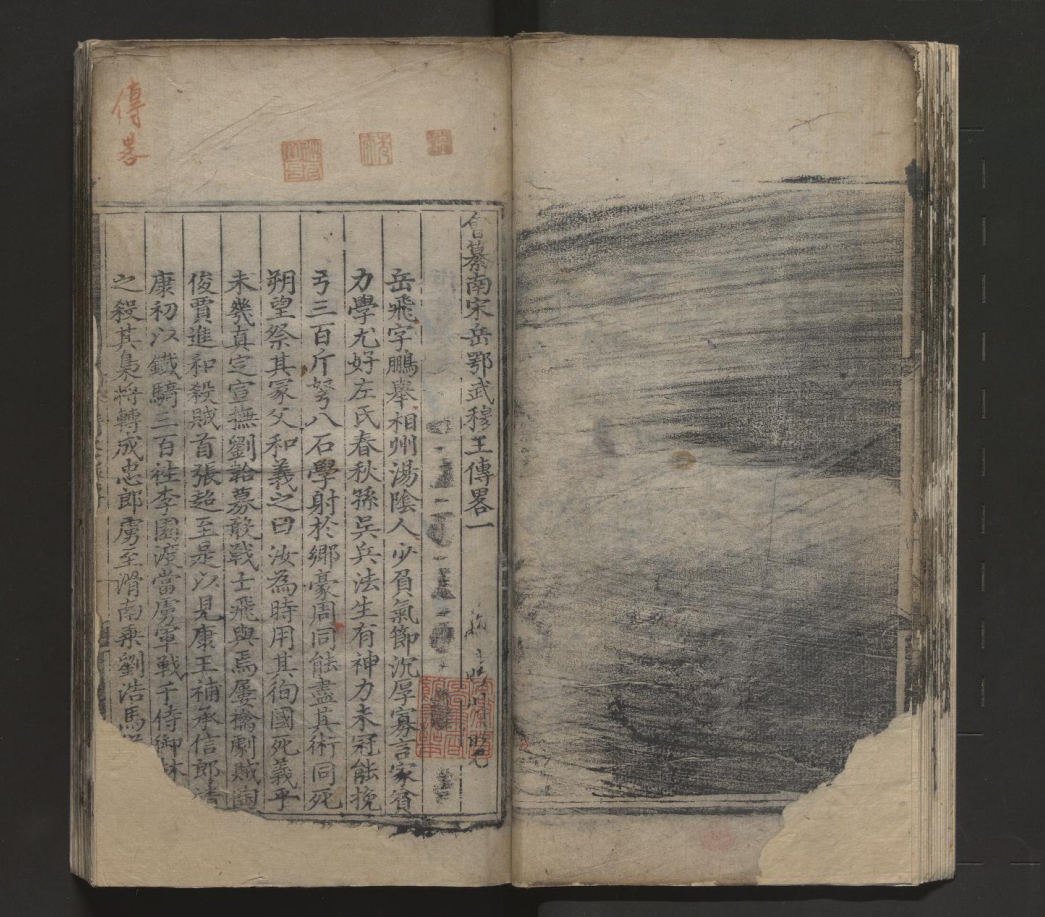 會纂南宋岳鄂武穆王傳畧一
岳飛字鵬舉相州湯隂人少負氣節沉厚寡言家貧
力學尤好左氏春秋孫吳兵法生有神力未冠能挽
弓三百斤弩八石學射於鄉豪周同能盡其術同死
朔望祭其冢父和義之曰汝為時用其徇國死義乎
未幾真定宣撫劉韐募敢戰士飛與焉屢擒劇賊陶
俊賈進和殺賊首張超至是以見康王補承信郎
康初以鐵騎三百往李園渡當虜軍戰于侍御林
之殺其梟將轉成忠郎虜至滑南乘劉浩馬
傳畧